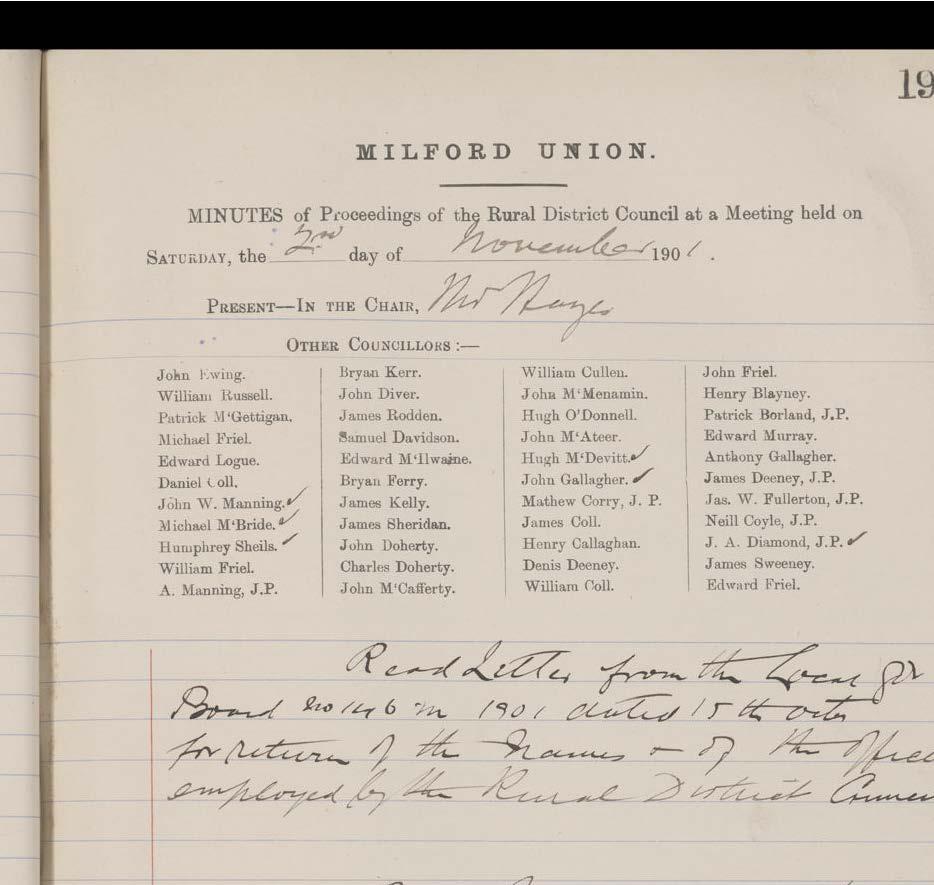 19
MILFORD UNION.
MINUTES of Proceedings of the Rural District Council at a Meeting held on
SATURDAY, the 2nd day of November 1901.
PRESENT—IN THE CHAIR, Mr Hayes
OTHER COUNCILLORS :—
John Ewing.
William Russell.
Patrick M'Gettigan.
Michael Friel.
Edward Logue.
Daniel Coll.
John W. Manning. ✓
Michael M'Bride. ✓
Humphrey Sheils. ✓
William Friel.
A. Manning, J.P.
Bryan Kerr.
John Diver.
James Rodden.
Samuel Davidson.
Edward M'Ilwaine.
Bryan Ferry.
James Kelly.
James Sheridan.
John Doherty.
Charles Doherty.
John M'Cafferty.
William Cullen.
John M'Menamin.
Hugh O'Donnell.
John M'Ateer.
Hugh M'Devitt. ✓
John Gallagher. ✓
Mathew Corry, J. P.
James Coll.
Henry Callaghan.
Denis Deeney.
William Coll.
John Friel.
Henry Blayney.
Patrick Borland, J.P.
Edward Murray.
Anthony Gallagher.
James Deeney, J.P.
Jas. W. Fullerton, J.P.
Neill Coyle, J.P.
J. A. Diamond, J.P. ✓
James Sweeney.
Edward Friel.
Read Letter from the Local
Board No 1901 dated 15th
for return of the Names & of the
employed by the Rural District